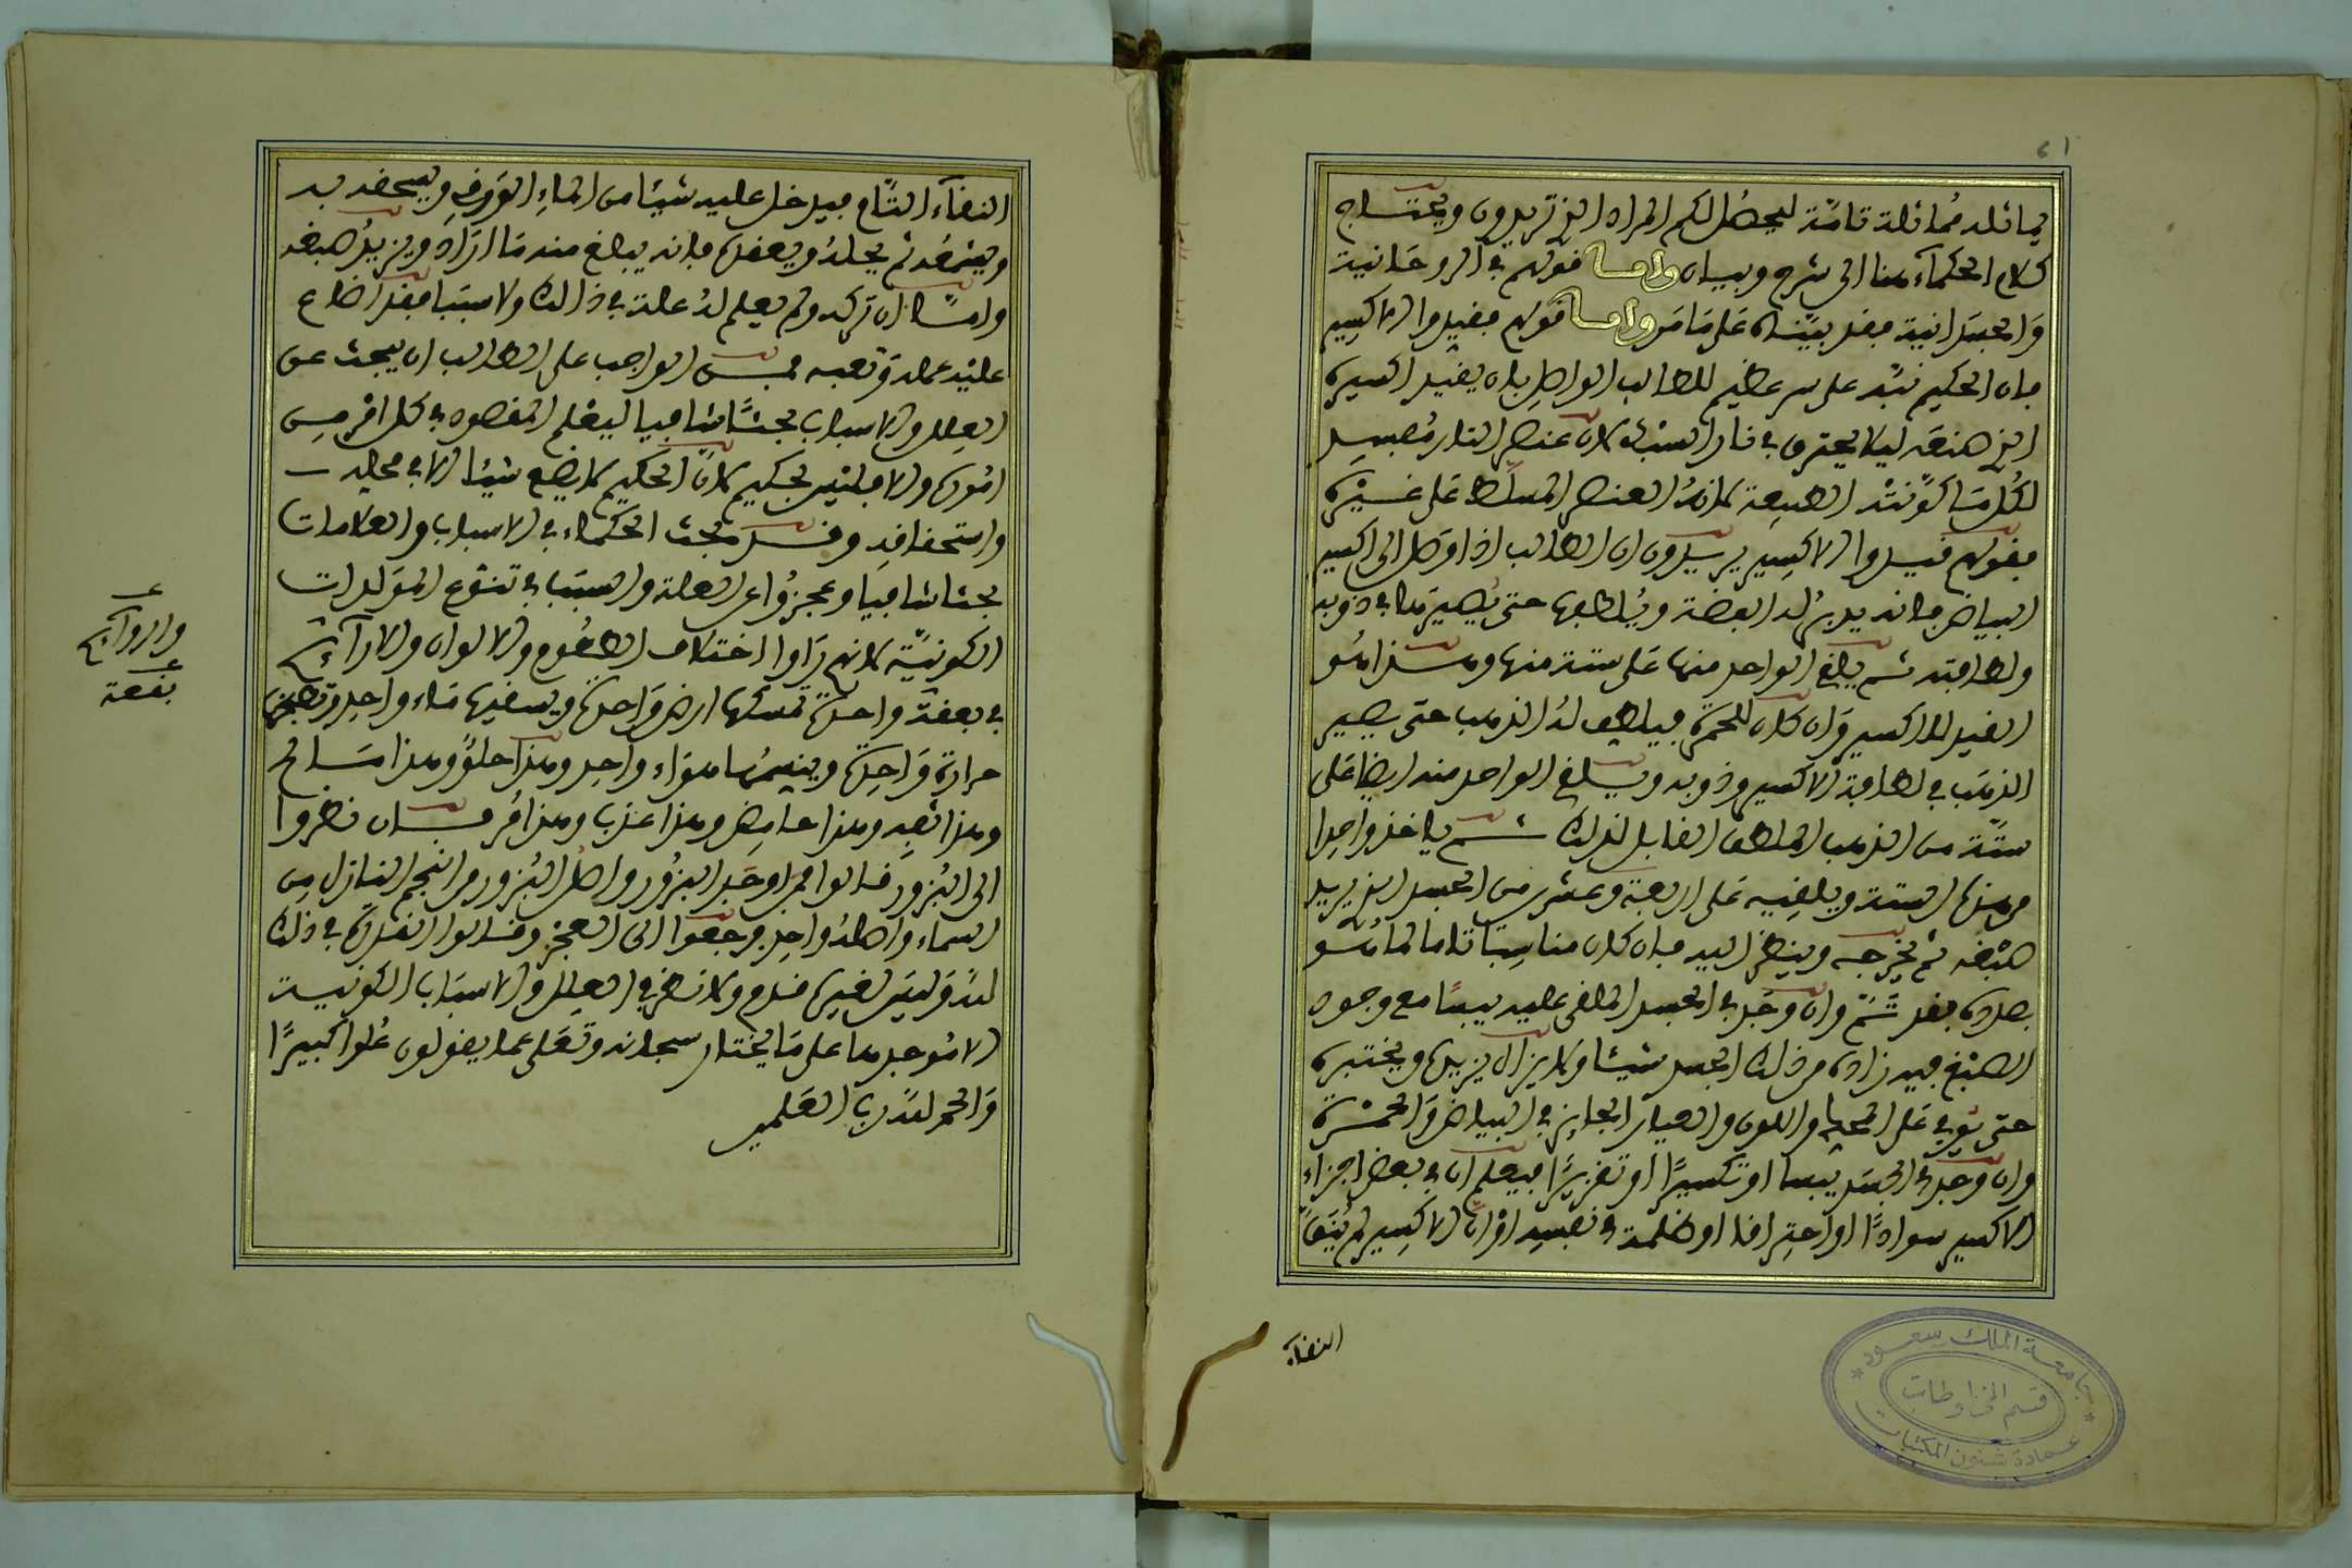 ٦١
يماثله مماثلة تامّة ليحصل لكم المراد الذي تريدون ويحتاج
كلام الحكماء هنا الى شرح وبيان واما قولهم في الروحانية
والجسدانية فقد بيّناه على ما مر واما قولهم فقيدوا الاكسير
فان الحكيم نبّه على سر عظيم للطالب الواصل بان يقيد اكسيره
الذي صنعه ليلا يحترق في نار السبك لان عنصر النار مفسد
لكل ما كوّنته الطبيعة لانه العنصر المسلّط على غيره
فقولهم قيدوا الاكسير يريدون ان الطالب اذا وصل الى اكسير
البياض فانه يدبر له الفضة ويلطفها حتى يصيرها في ذوبه
ولطافته ثم يلقي الواحد منها على ستة منها وهذا هو
القيد للاكسير وان كان للحمرة فيلطف له الذهب حتى يصير
الذهب في لطافة الاكسير وذوبه ويلقي الواحد منه ايضا على
ستّة من الذهب الملطف القابل لذلك ثم ياخذ واحدا
من هذه الستة ويلقيه على اربعة وعشرين من الجسد الذي يريد
صبغه ثم يخرجه وينظر اليه فان كان مناسبا تاما لما هو
بصدده فقد تمّ وان وجد في الجسد الملقى عليه يبسًا مع وجود
الصبغ فيه زاده من ذلك الجسد شيئا ولا يزال يزيده ويختبره
حتى يوفي على المحك واللون والعيار الجايز في البياض والحمرة
وان وجد في الجسد يبسا او تكسيرًا او تقزيزًا فيعلم ان في بعض اجزاء
الاكسير سوادًا او احتراقا او ظلمة في نفسه او ان الاكسير لم ينقّ
النقاء
النقاء التّام فيدخل عليه شيئا من الماء الورقي ويسحقه به
ويشمّعه ثم يحله ويعقده فانه يبلغ منه ما اراد ويزيد صبغه
وامّا ان تركه ولم يعلم له علة في ذالك ولا سببا فقد اضاع
عليه عمله وتعبه فمن الواجب على الطالب ان يبحث عن
العلل والاسباب بحثًا شافيا ليعلم المقصود في كل امر من
اموره والا فليس بحكيم لان الحكيم لا يضع شيئا الا في محله
واستحقاقه وقد بحث الحكماء في الاسباب والعلامات
بحثا شافيا وعجزوا عن العلة والسبب في تنوع المولدات
الكونيّة لانهم راوا اختلاف الطعوم والالوان والاراائح
في بقعة واحدة تمسكها ارض واحدة ويسقيها ماء واحد وتطبخها
حرارة واحدة وينسمها هواء واحد وهذا حلوٌ وهذا مالح
وهذا تفه وهذا حامض وهذا عذب وهذا مر فان نظروا
الى البزور قالوا من اوجد البزور واصل البزور من النجم النازل من
السماء واصله واحد رجعوا الى العجز وقالوا القدرة في ذلك
لله وليس لغيره قدم ولا نظر في العلل والاسباب الكونية
الا موجدها على ما يختار سبحانه وتعلى عما يقولون علوا كبيرًا
والحمد لله رب العلمين
والروايح
بقعة
جامعة الملك سعود
قسم المخطوطات
عمادة شئون المكتبات